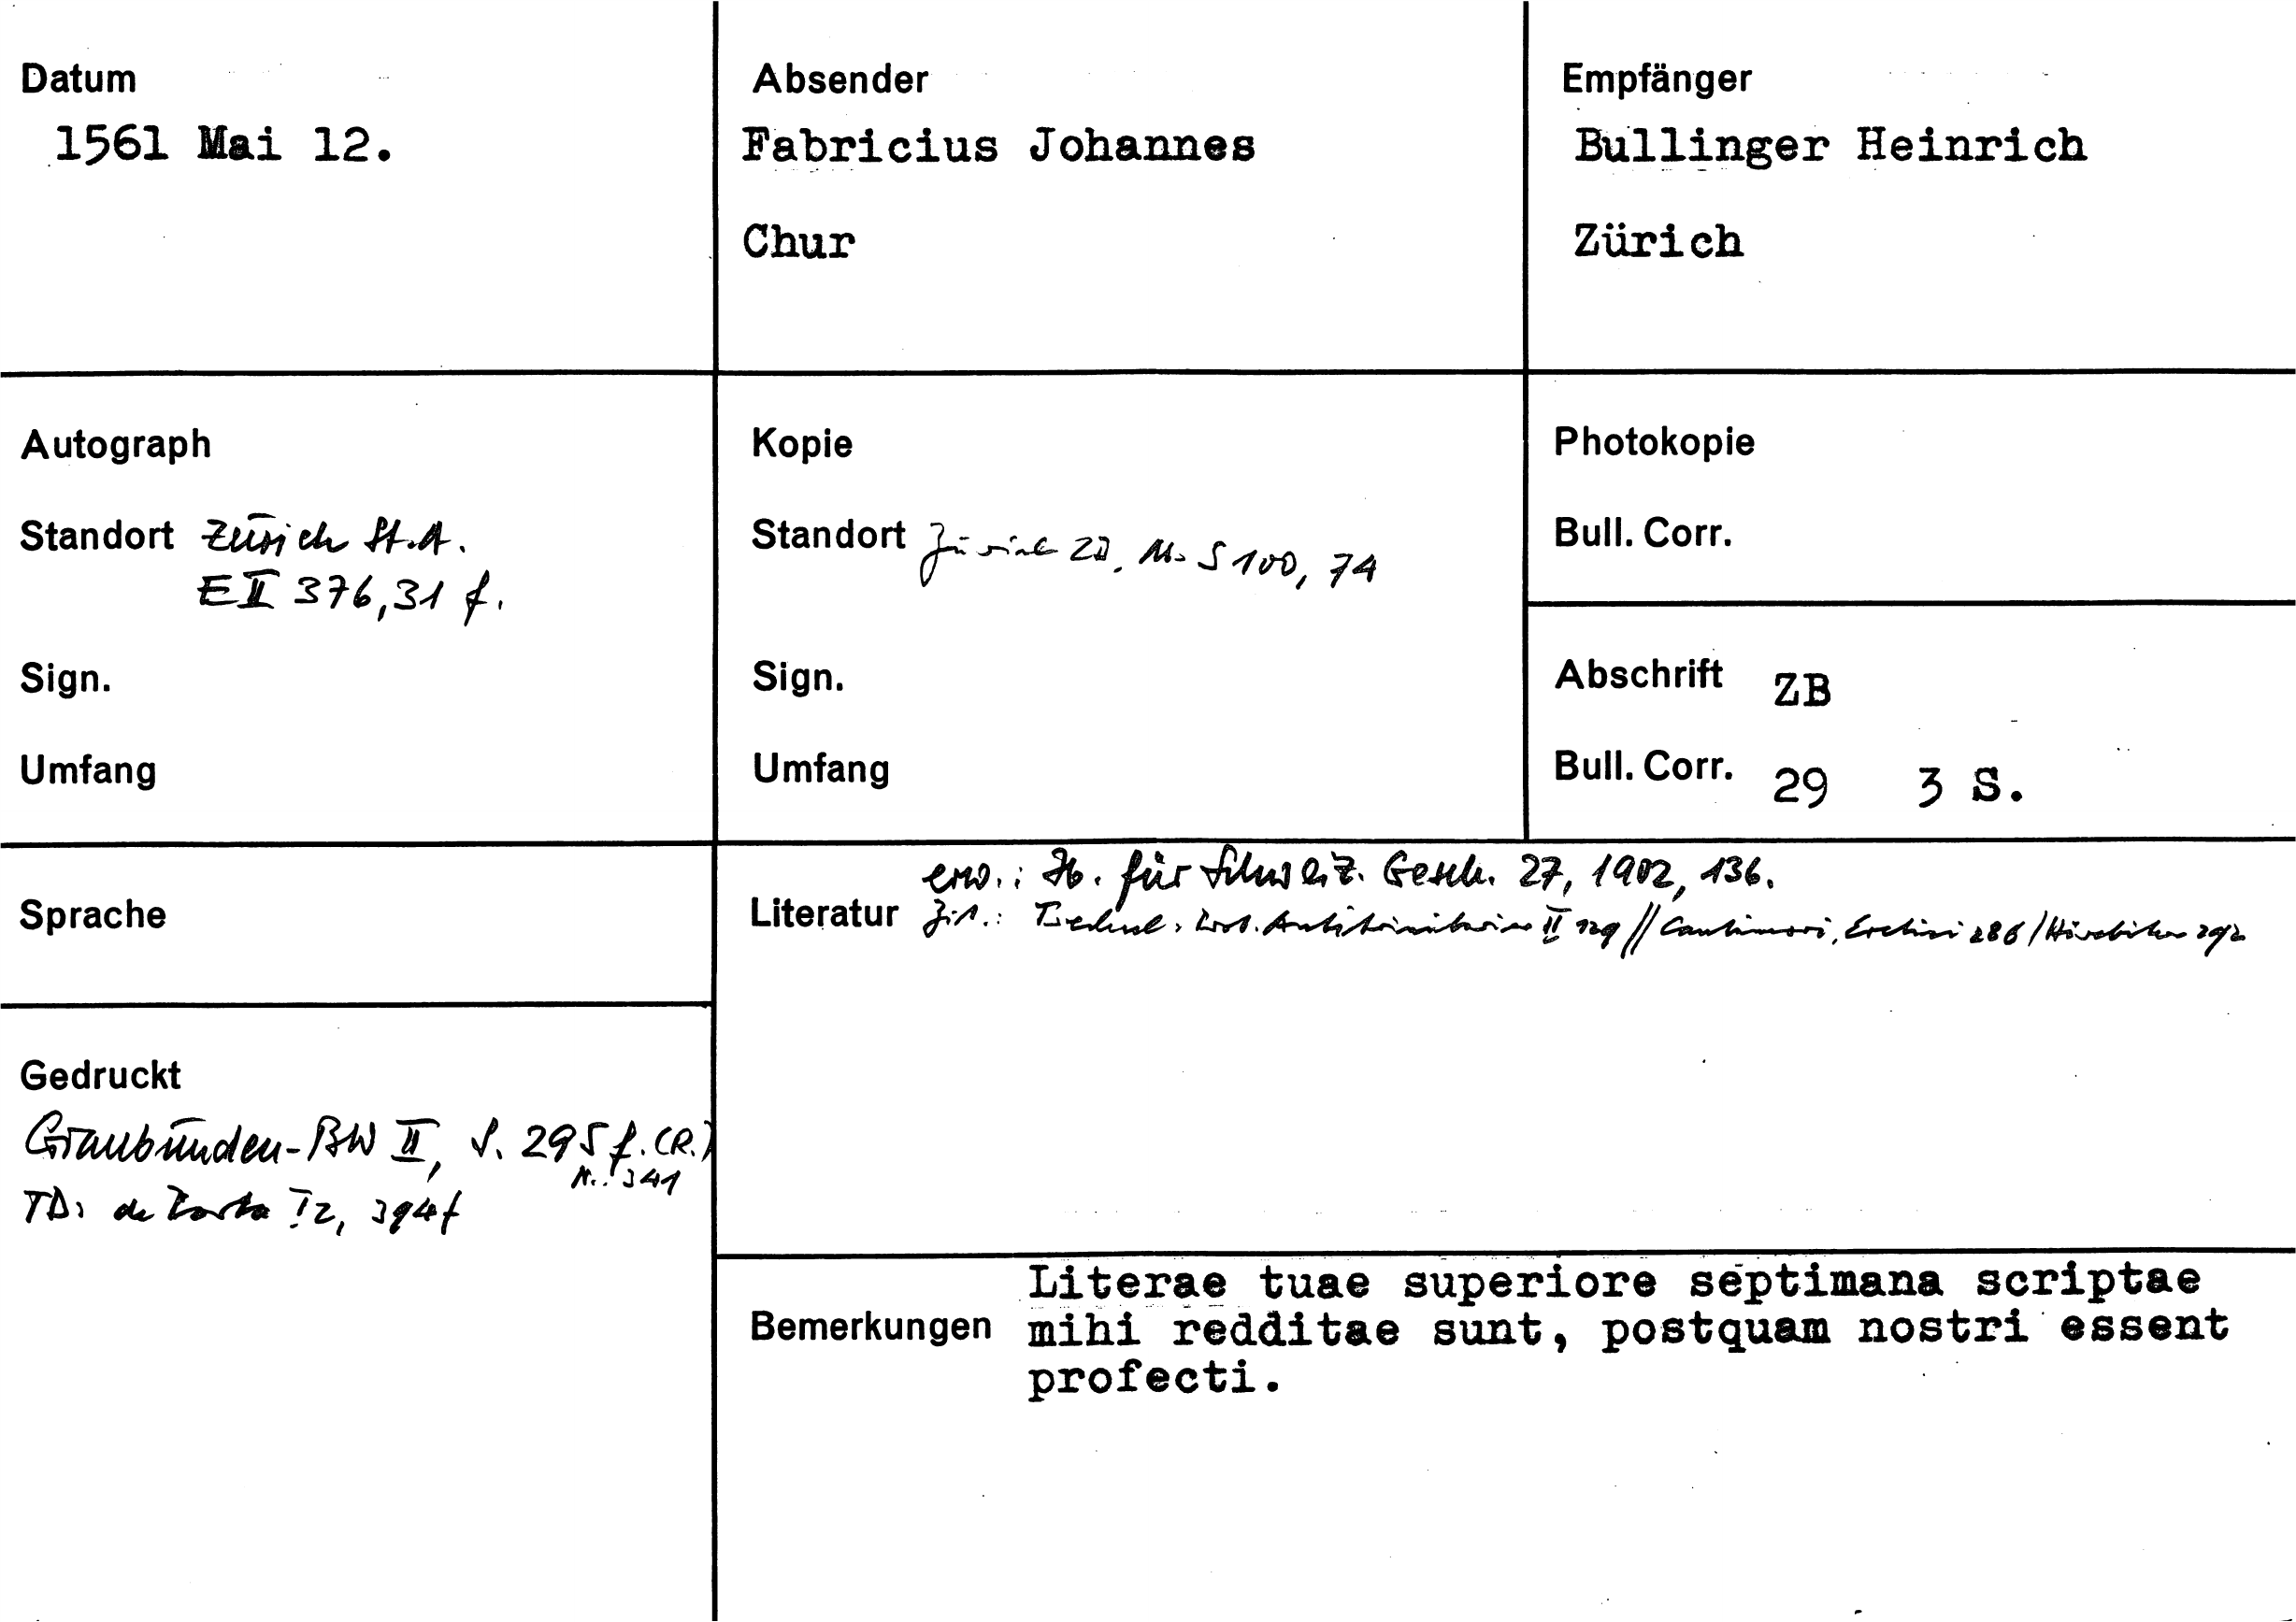 Datum
1561 Mai 12.
Absender
Fabricius Johannes
Chur
Empfänger
Bullinger Heinrich
Zürich
Autograph
Standort Zürich St.A.
E II 376,31 f.
Sign.
Umfang
Kopie
Standort Zürich ZB, Ms S 100, 74
Sign.
Umfang
Photokopie
Bull. Corr.
Abschrift ZB
Bull. Corr. 29 3 S.
Sprache
erw.: Jb. für Schweiz. Gesch. 27, 1902, 136.
Literatur Zit.: Antitrinitarier II 129 // Cantimori, Eretici 286 / 292
Gedruckt
Graubünden-BW II, S. 295 f. (R.)
Nr. 341
TD: de Porta I 2, 394f
Literae tuae superiore septimana scriptae
Bemerkungen mihi redditae sunt, postquam nostri essent
profecti.